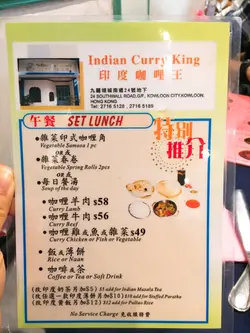 Indian Curry King
印度咖喱王
九龍城城南道24號地下
24 SOUTHWALL ROAD,G/F, KOWLOON CITY,KOWLOON,
HONG KONG
Tel : 2716 5128 , 2716 5189
午餐 SET LUNCH
特別推介
雜菜印式咖喱角
Vegetable Samosa 1 pc
OR或
雜菜春卷
Vegetable Spring Rolls 2pcs
OR或
每日餐湯
Soup of the day
咖喱羊肉 $58
Curry Lamb
咖喱牛肉 $56
Curry Beef
咖喱雞或魚或雜菜 $49
Curry Chicken or Fish or Vegetable
飯或薄餅
Rice or Naan
咖啡或茶
Coffee or Tea or Soft Drink
(改印度奶茶另加$5) $5 add for Indian Masala Tea
(改任選一款印度薄餅另加$10) $10 add for Stuffed Paratha
$12 add for Pullao Rice
No Service Charge 免收服務費